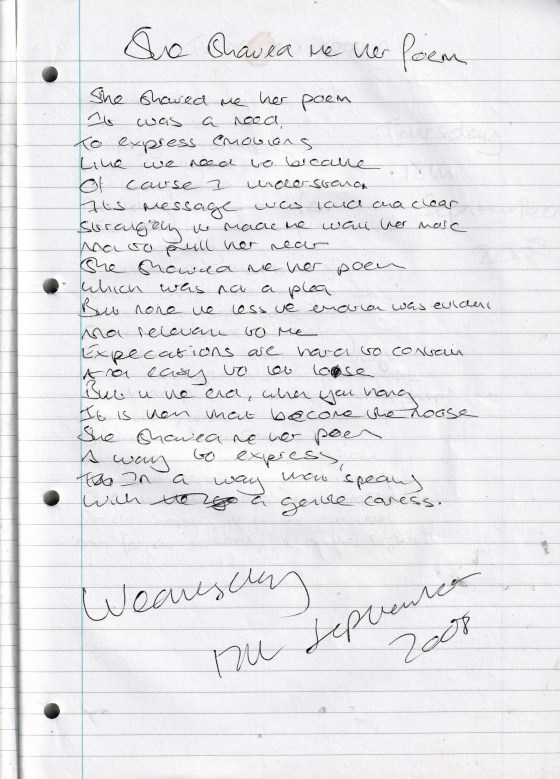 She Shared Me Her Poem
She shared me her poem
It was a need,
To express emotions
Like we need to breathe
Of cause I understand
Its message was loud and clear
Strangely it made me want her more
And to pull her near
She showed me her poem
Which was not a plea
But none the less the emotion was evident
And relevant to me
Expecations are hard to contain
And easy to let loose
But in the end, when you hang
It is then that become the noose
She shared me her poem
A way to express,
In a way that speaks
With a gentle caress.
Wednesday
17th September
2008